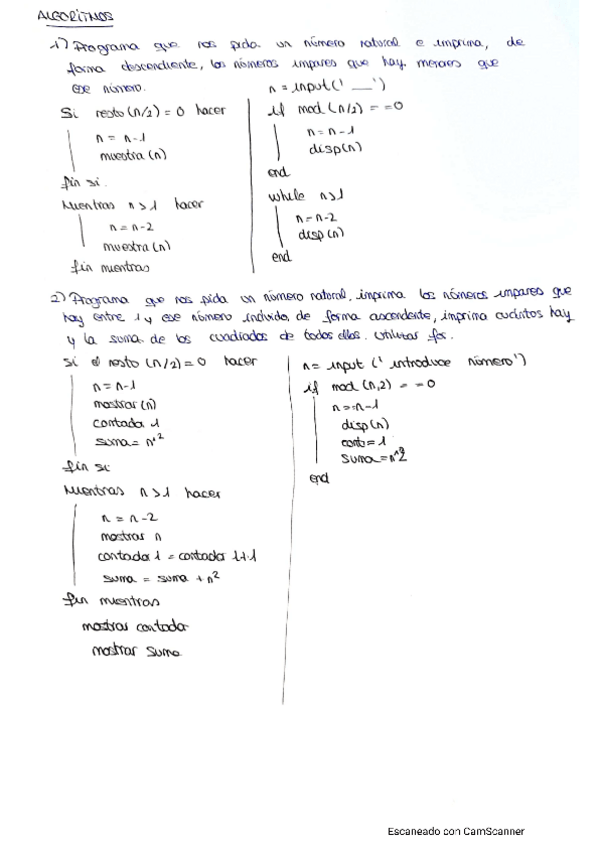 ALGORITMOS
1) Programa que nos pida un número natural e imprima, de
forma descendiente, los números impares que hay menores que
ese número.
Si resto (n/2) = 0 hacer
n = n-1
muestra (n)
fin si.
Mientras n > 1 hacer
n = n-2
muestra (n)
fin mientras
n = input (' __ ')
if mod (n/2) == 0
n = n-1
disp(n)
end
while n>1
n = n-2
disp (n)
end
2) Programa que nos pida un número natural, imprima los números impares que
hay entre 1 y ese número incluido, de forma ascendente, imprima cuántos hay
y la suma de los cuadrados de todos ellos. Utilizar for.
Si el resto (n/2) = 0 hacer
n = n-1
mostrar (n)
contada 1
suma = n^2
fin si
Mientras n > 1 hacer
n = n-2
mostrar n
contada 1 = contada 1+1
suma = suma + n²
fin mientras
mostrar contada
mostrar suma
n = input (' introduce número')
if mod (n,2) == 0
n = n-1
disp(n)
cont = 1
suma = n^2
end
Escaneado con CamScanner